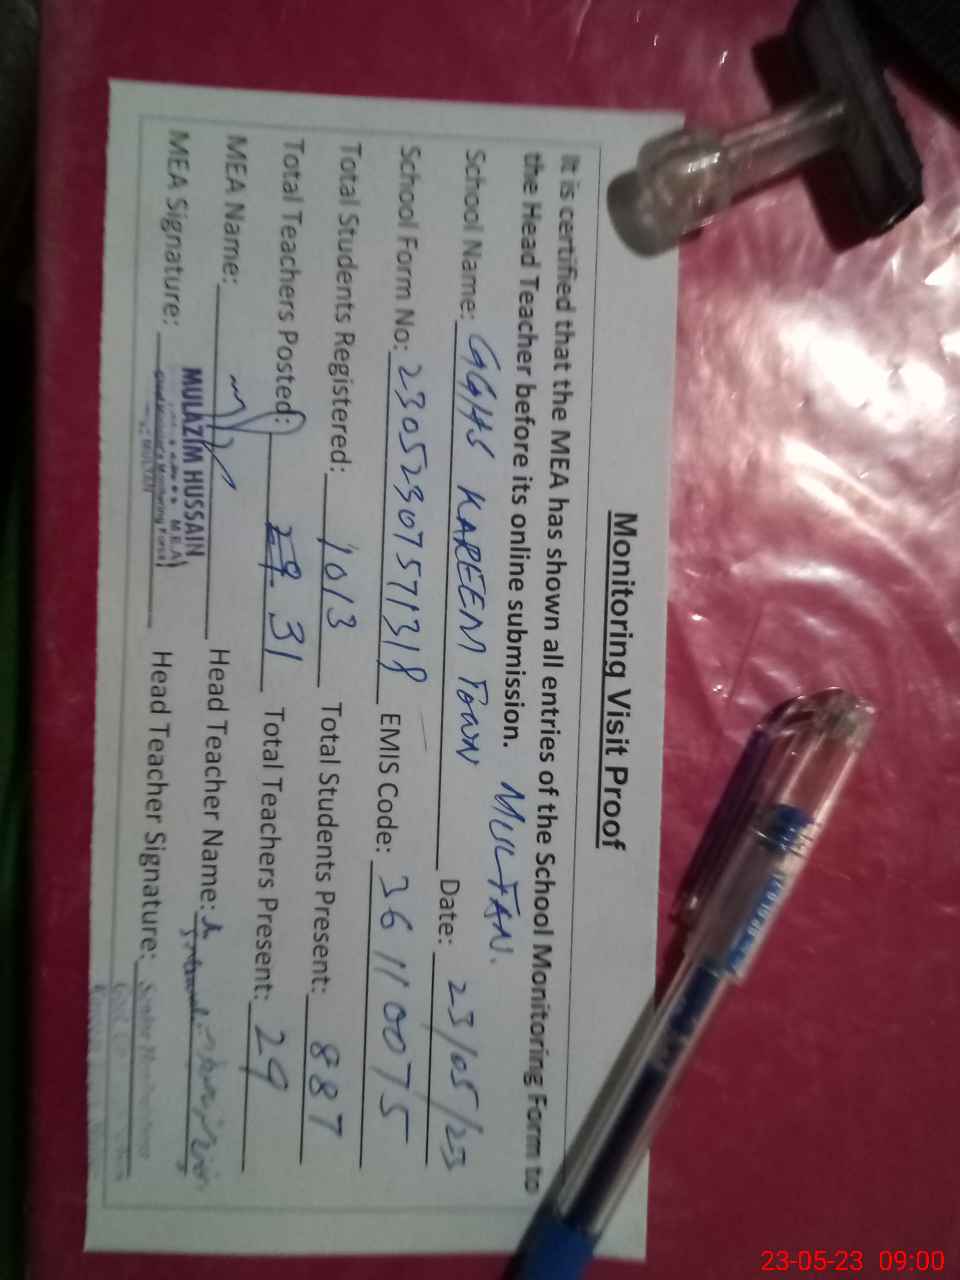 Monitoring Visit Proof
It is certified that the MEA has shown all entries of the School Monitoring Form to
the Head Teacher before its online submission. MULTAN.
School Name: GGHS KAREEM TOWN Date: 23/05/23
School Form No: 23052307571318 EMIS Code: 36110075
Total Students Registered: 1013 Total Students Present: 887
Total Teachers Posted: 29 31 Total Teachers Present: 29
MEA Name: Head Teacher Name:
MEA Signature: Head Teacher Signature:
MULAZIM HUSSAIN
M.E.A)
Monitoring Force)
MULTAN
23-05-23 09:00